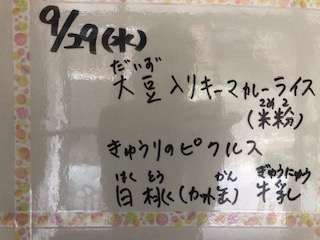 9/29(水)
だいず
大豆入りキーマカレーライス
こめこ
(米粉)
きゅうりのピクルス
はくとう かん ぎゅうにゅう
白桃(カット缶) 牛乳